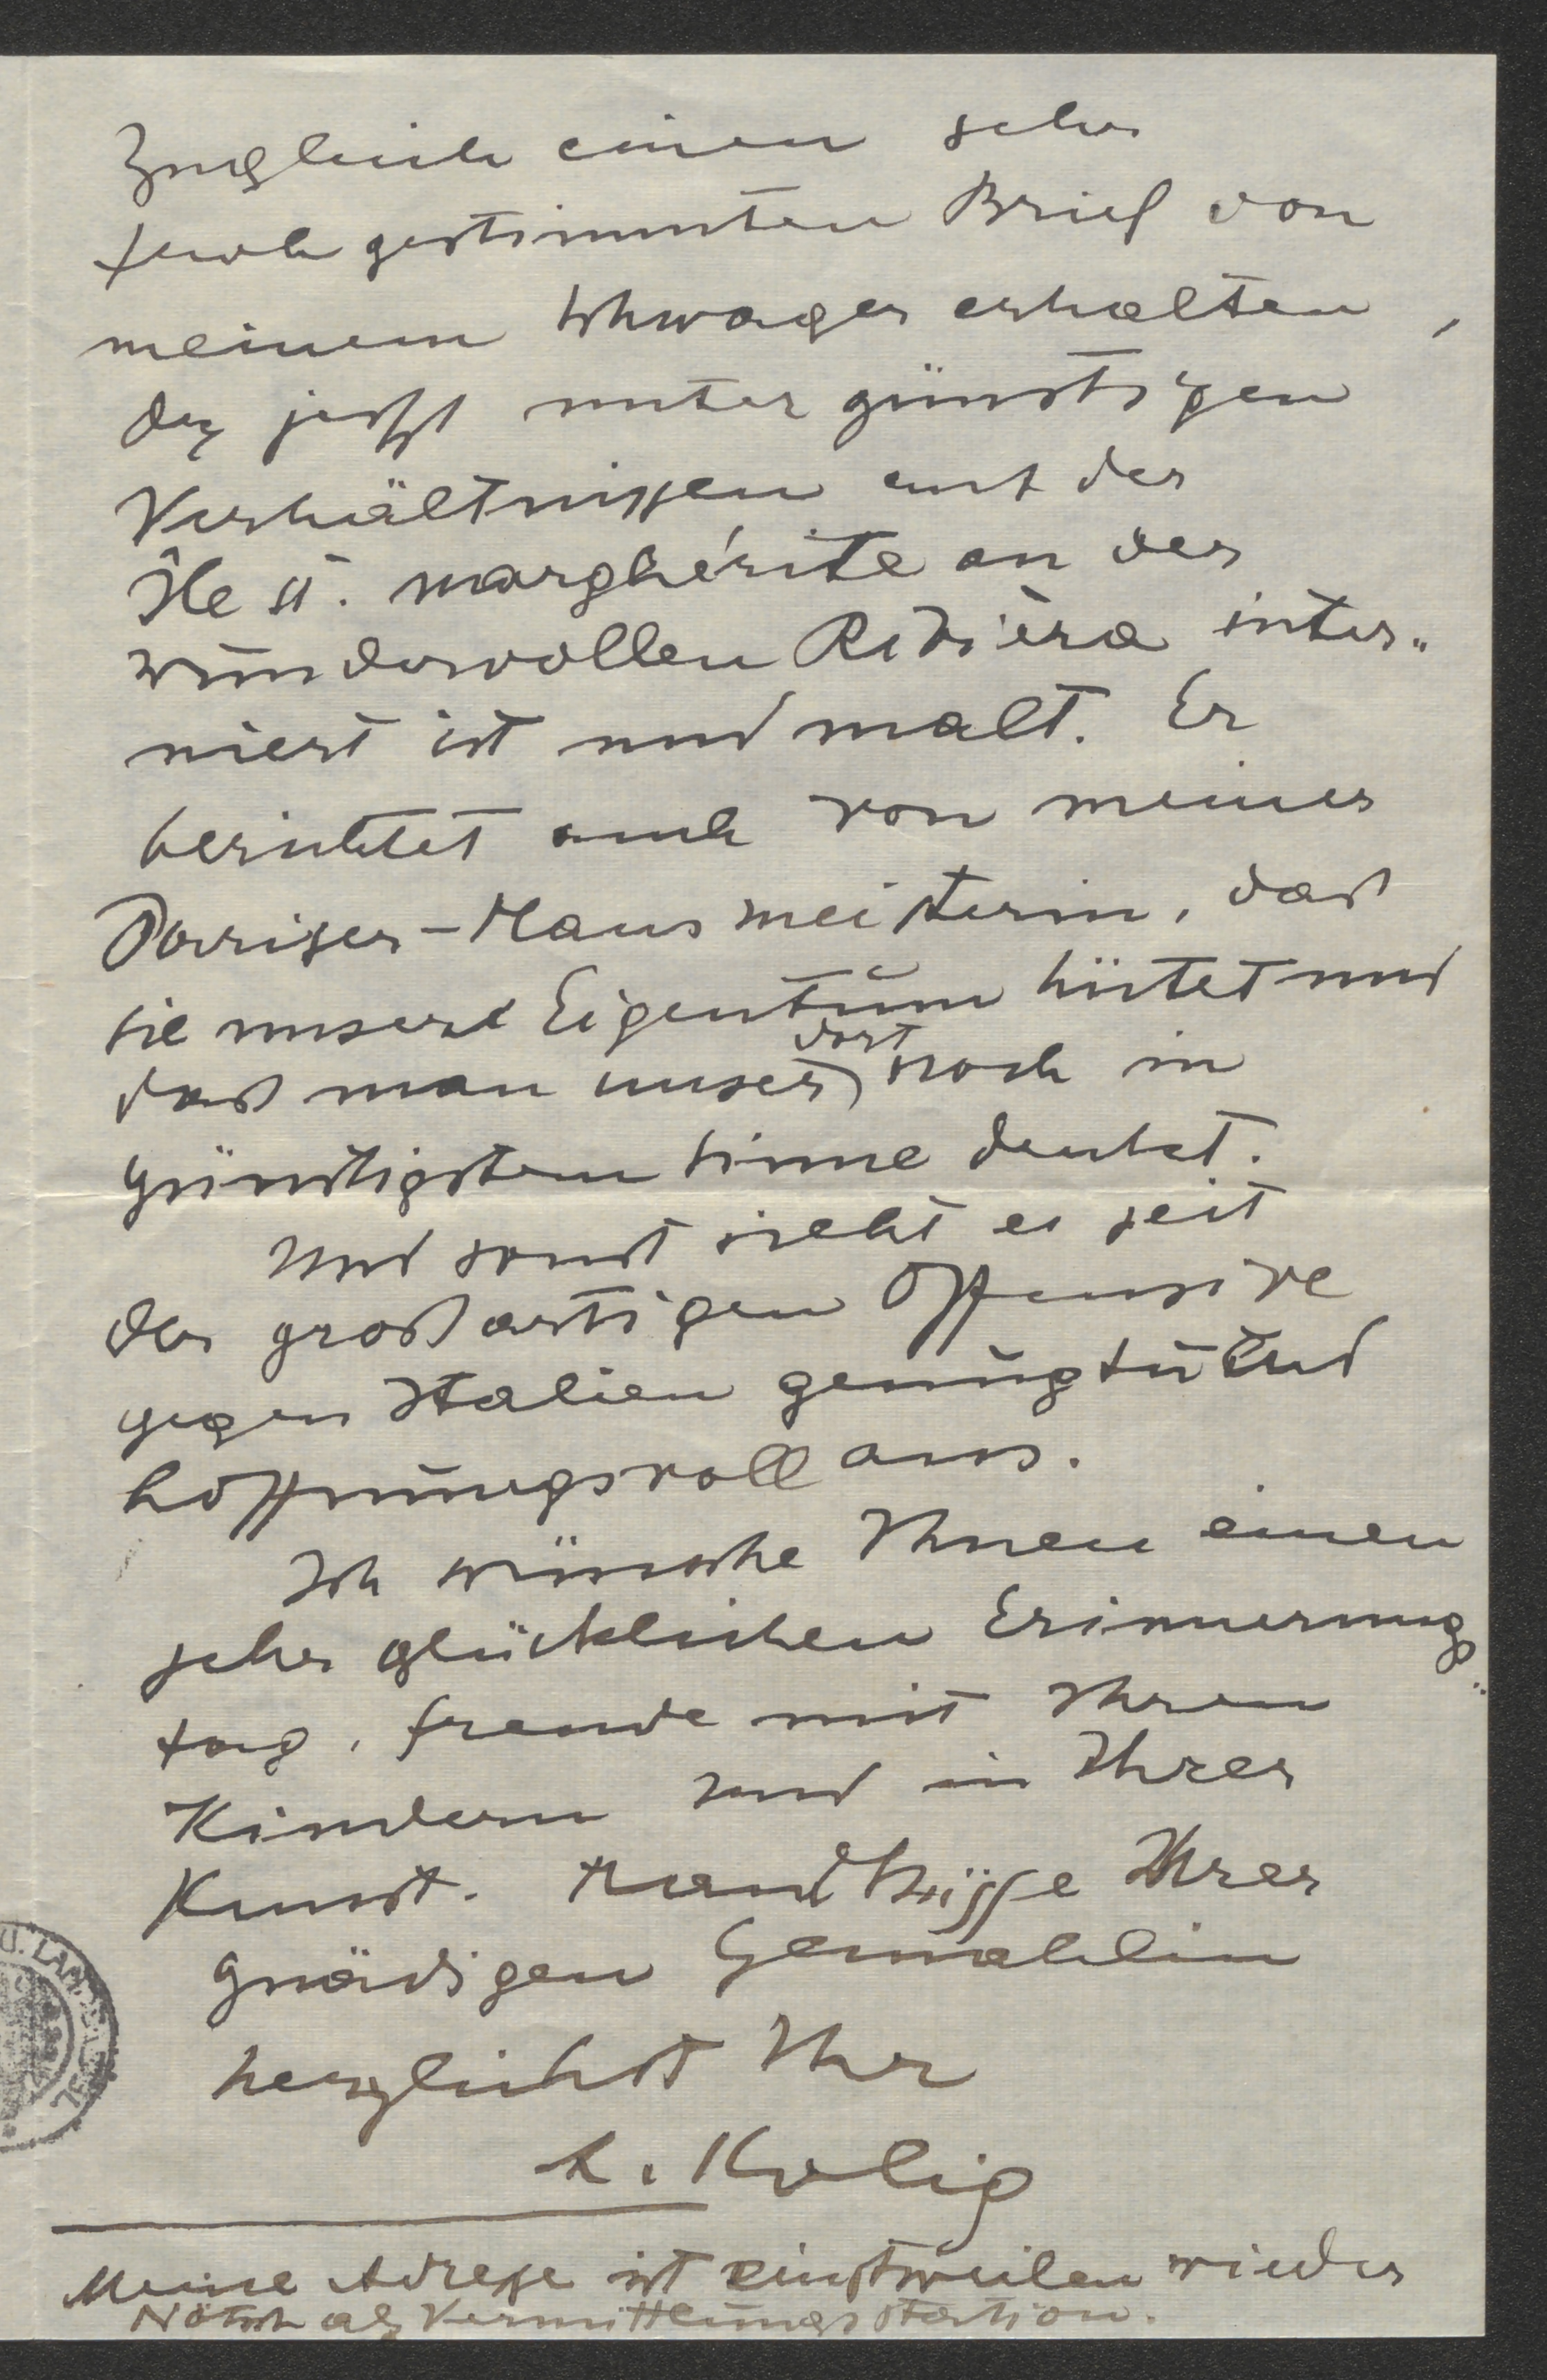 Zugleich einen sehr
froh gestimmten Brief von
meinem Schwager erhalten,
der jetzt unter günstigen
Verhältnissen auf der
Île St. Marghérite an der
wundervollen Riviera inter„
niert ist und malt. Er
berichtet auch von meiner
Pariser-Hausmeisterin, daß
sie unsere Eigentum hütet und
daß man unser dort noch in
günstigstem Sinne denket.
Und sonst sieht es seit
der großartigen Offensive
gegen Italien genugtuend
hoffnungsvoll aus.
Ich wünsche Ihnen einen
sehr glücklichen Erinnerungs„
tag, Freude mit Ihren
Kindern und in Ihrer
Kunst. Handküsse Ihrer
gnädigen Gemahlin
herzlichst Ihr
A. Kolig
Meine Adresse ist einstweilen wieder
Nötsch als Vermittlungsstation.
U. LAN